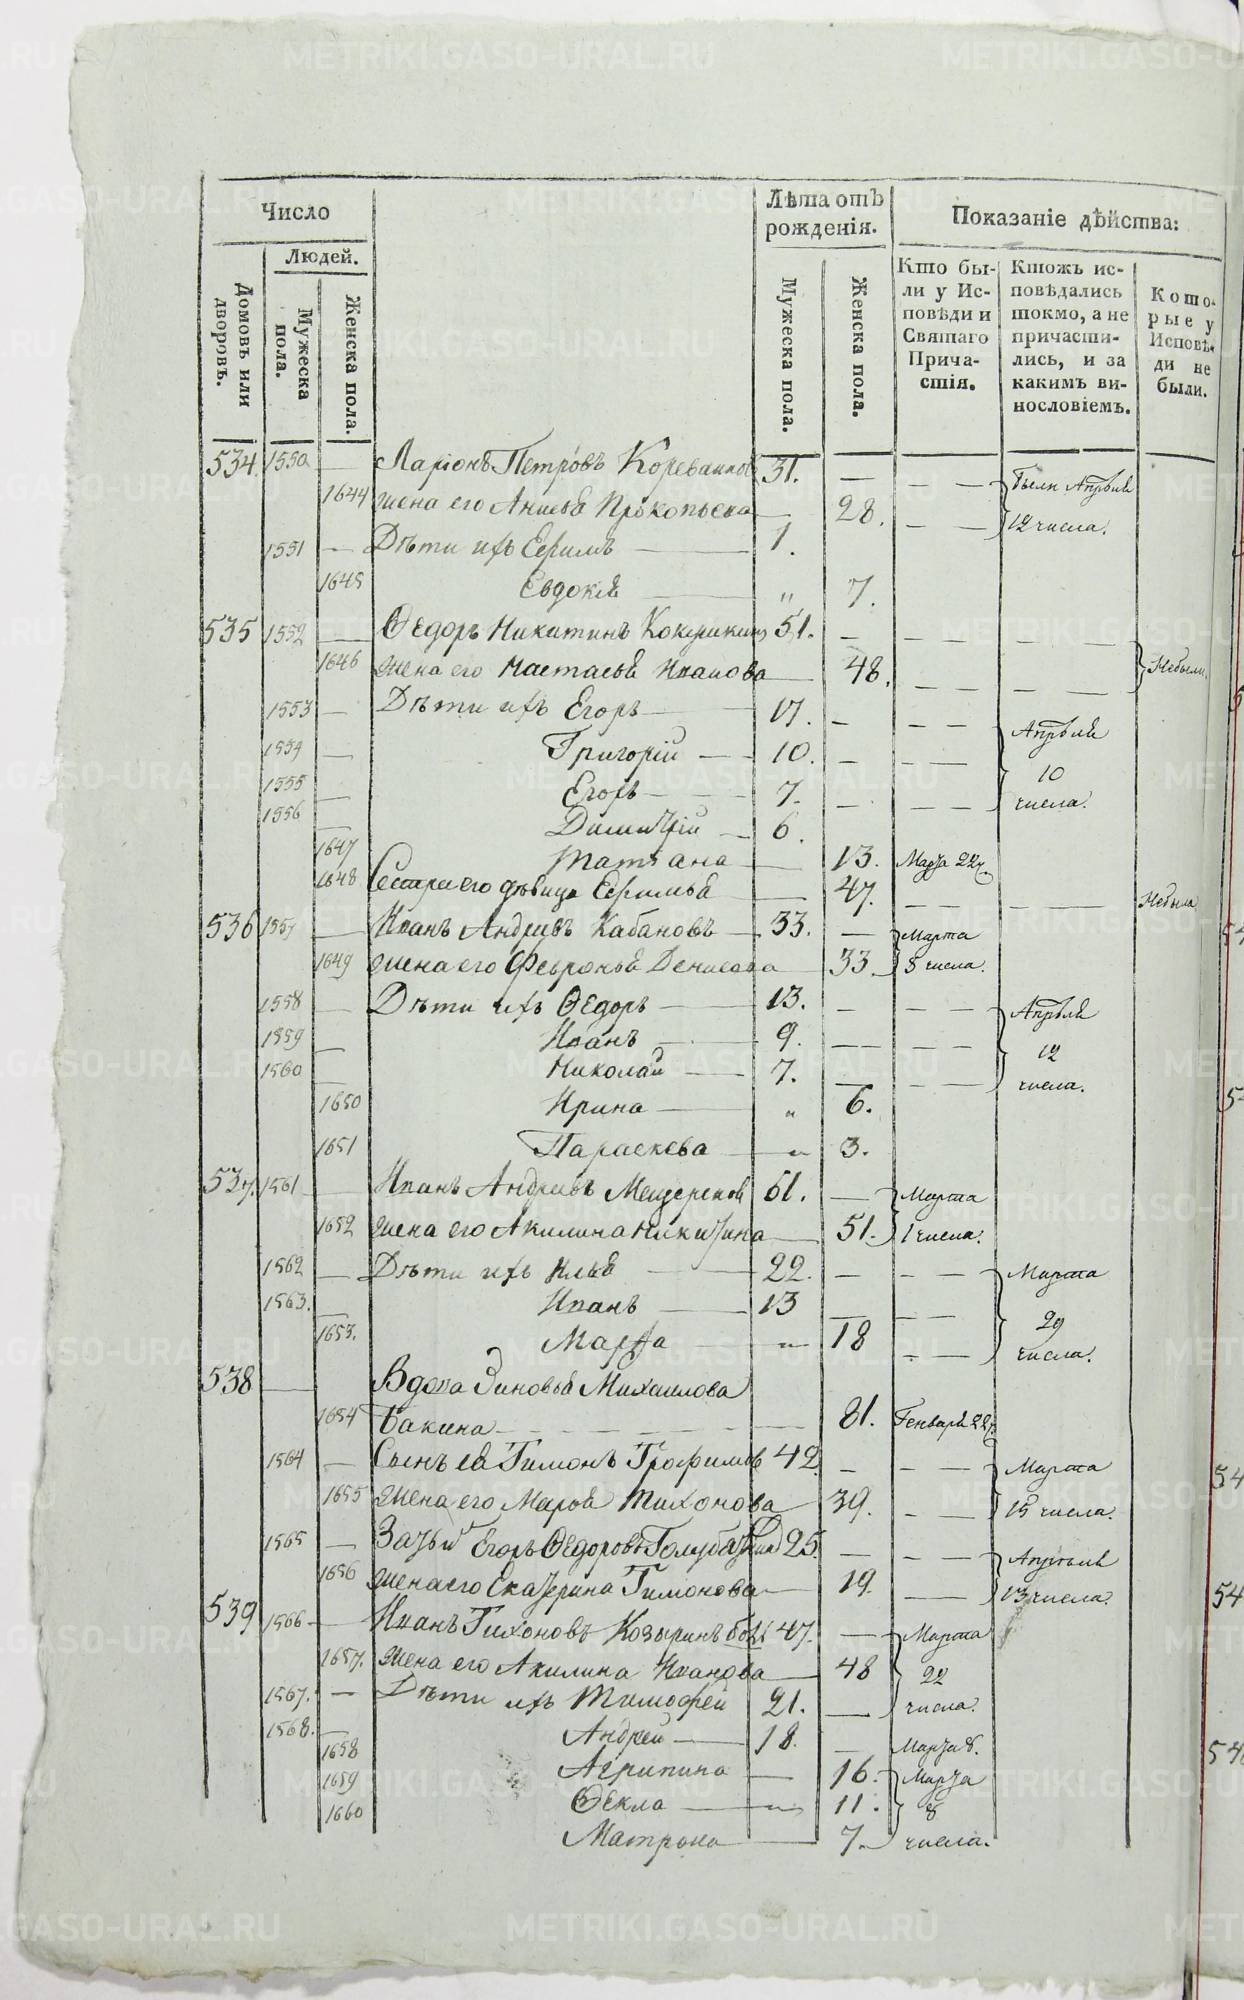 Число
Людей.
Домовъ или дворовъ.
Мужеска пола.
Женска пола.
Лѣта отъ рожденія.
Мужеска пола.
Женска пола.
Показаніе дѣйства:
Кто бы-
ли у Ис-
повѣди и
Святаго
Прича-
стія.
Ктожъ ис-
повѣдались
токмо, а не
причасти-
лись, и за
какимъ ви-
нословіемъ.
Кото-
рые у
Исповѣ-
ди не
были.
534. 1550 — Ларіонъ Петровъ 31. — — —
1644 жена его Анисья Прокопьева — 28. — — Были Апрѣля 12 числа.
1551 — Дѣти ихъ Ефимъ — 1.
1645 Евдокія — " 7.
535 1552 — Ѳедоръ Никитинъ Кокушкинъ 51. — — — — —
1646 жена его Настасья Иванова — 48. — — — — Небыли.
1553 — Дѣти ихъ Егоръ — 17. — — —
1554 — Григорій — 10. — — — Апрѣля 10 числа.
1555 — Егоръ — 7. — — —
1556 — Димитрій — 6.
1647 Татіана — 13. Марта 22
1648 Сестра его дѣвица Ефимья — 47. — — — Небыла.
536 1557 — Иванъ Андреевъ Кабановъ — 33. — Марта
1649 жена его Февронья Денисова — 33. 8 числа.
1558 — Дѣти ихъ Ѳедоръ — 13. — — — Апрѣля
1559 — Иванъ — 9. — — — 12
1560 — Николай — 7. — — — числа.
1650 Ирина — " 6.
1651 Параскева — " 3.
537. 1561 — Иванъ Андреевъ 61. — Марта
1652 жена его Акилина Никитина — 51. 1 числа.
1562 — Дѣти ихъ Илья — 22. — — — Марта
1563. — Иванъ — 13 — — — 29
1653. Марфа — " 18 — — числа.
538 — Вдова Зиновья Михаилова
1654 Бакина — — 81. Генваря 22
1564 — Сынъ ея Тимонъ Трофимовъ 42. — — — Марта
1655 жена его Марфа Тихонова — 39. — — 15 числа.
1565 — Зять Егоръ Ѳедоровъ 25. — — — Апрѣля
1656 жена его Екатерина Тимонова — 19. — 13 числа.
539 1566 — Иванъ Тихоновъ Козыринъ 47. — Марта
1657. жена его Акилина Иванова — 48 22
1567. — Дѣти ихъ Тимофей 21. — числа.
1568. — Андрей — 18. — Марта 8.
1658 Агрипина — 16. Марта
1659 Ѳекла — " 11. 8
1660 Матрона — 7. числа.
METRIKI.GASO-URAL.RU